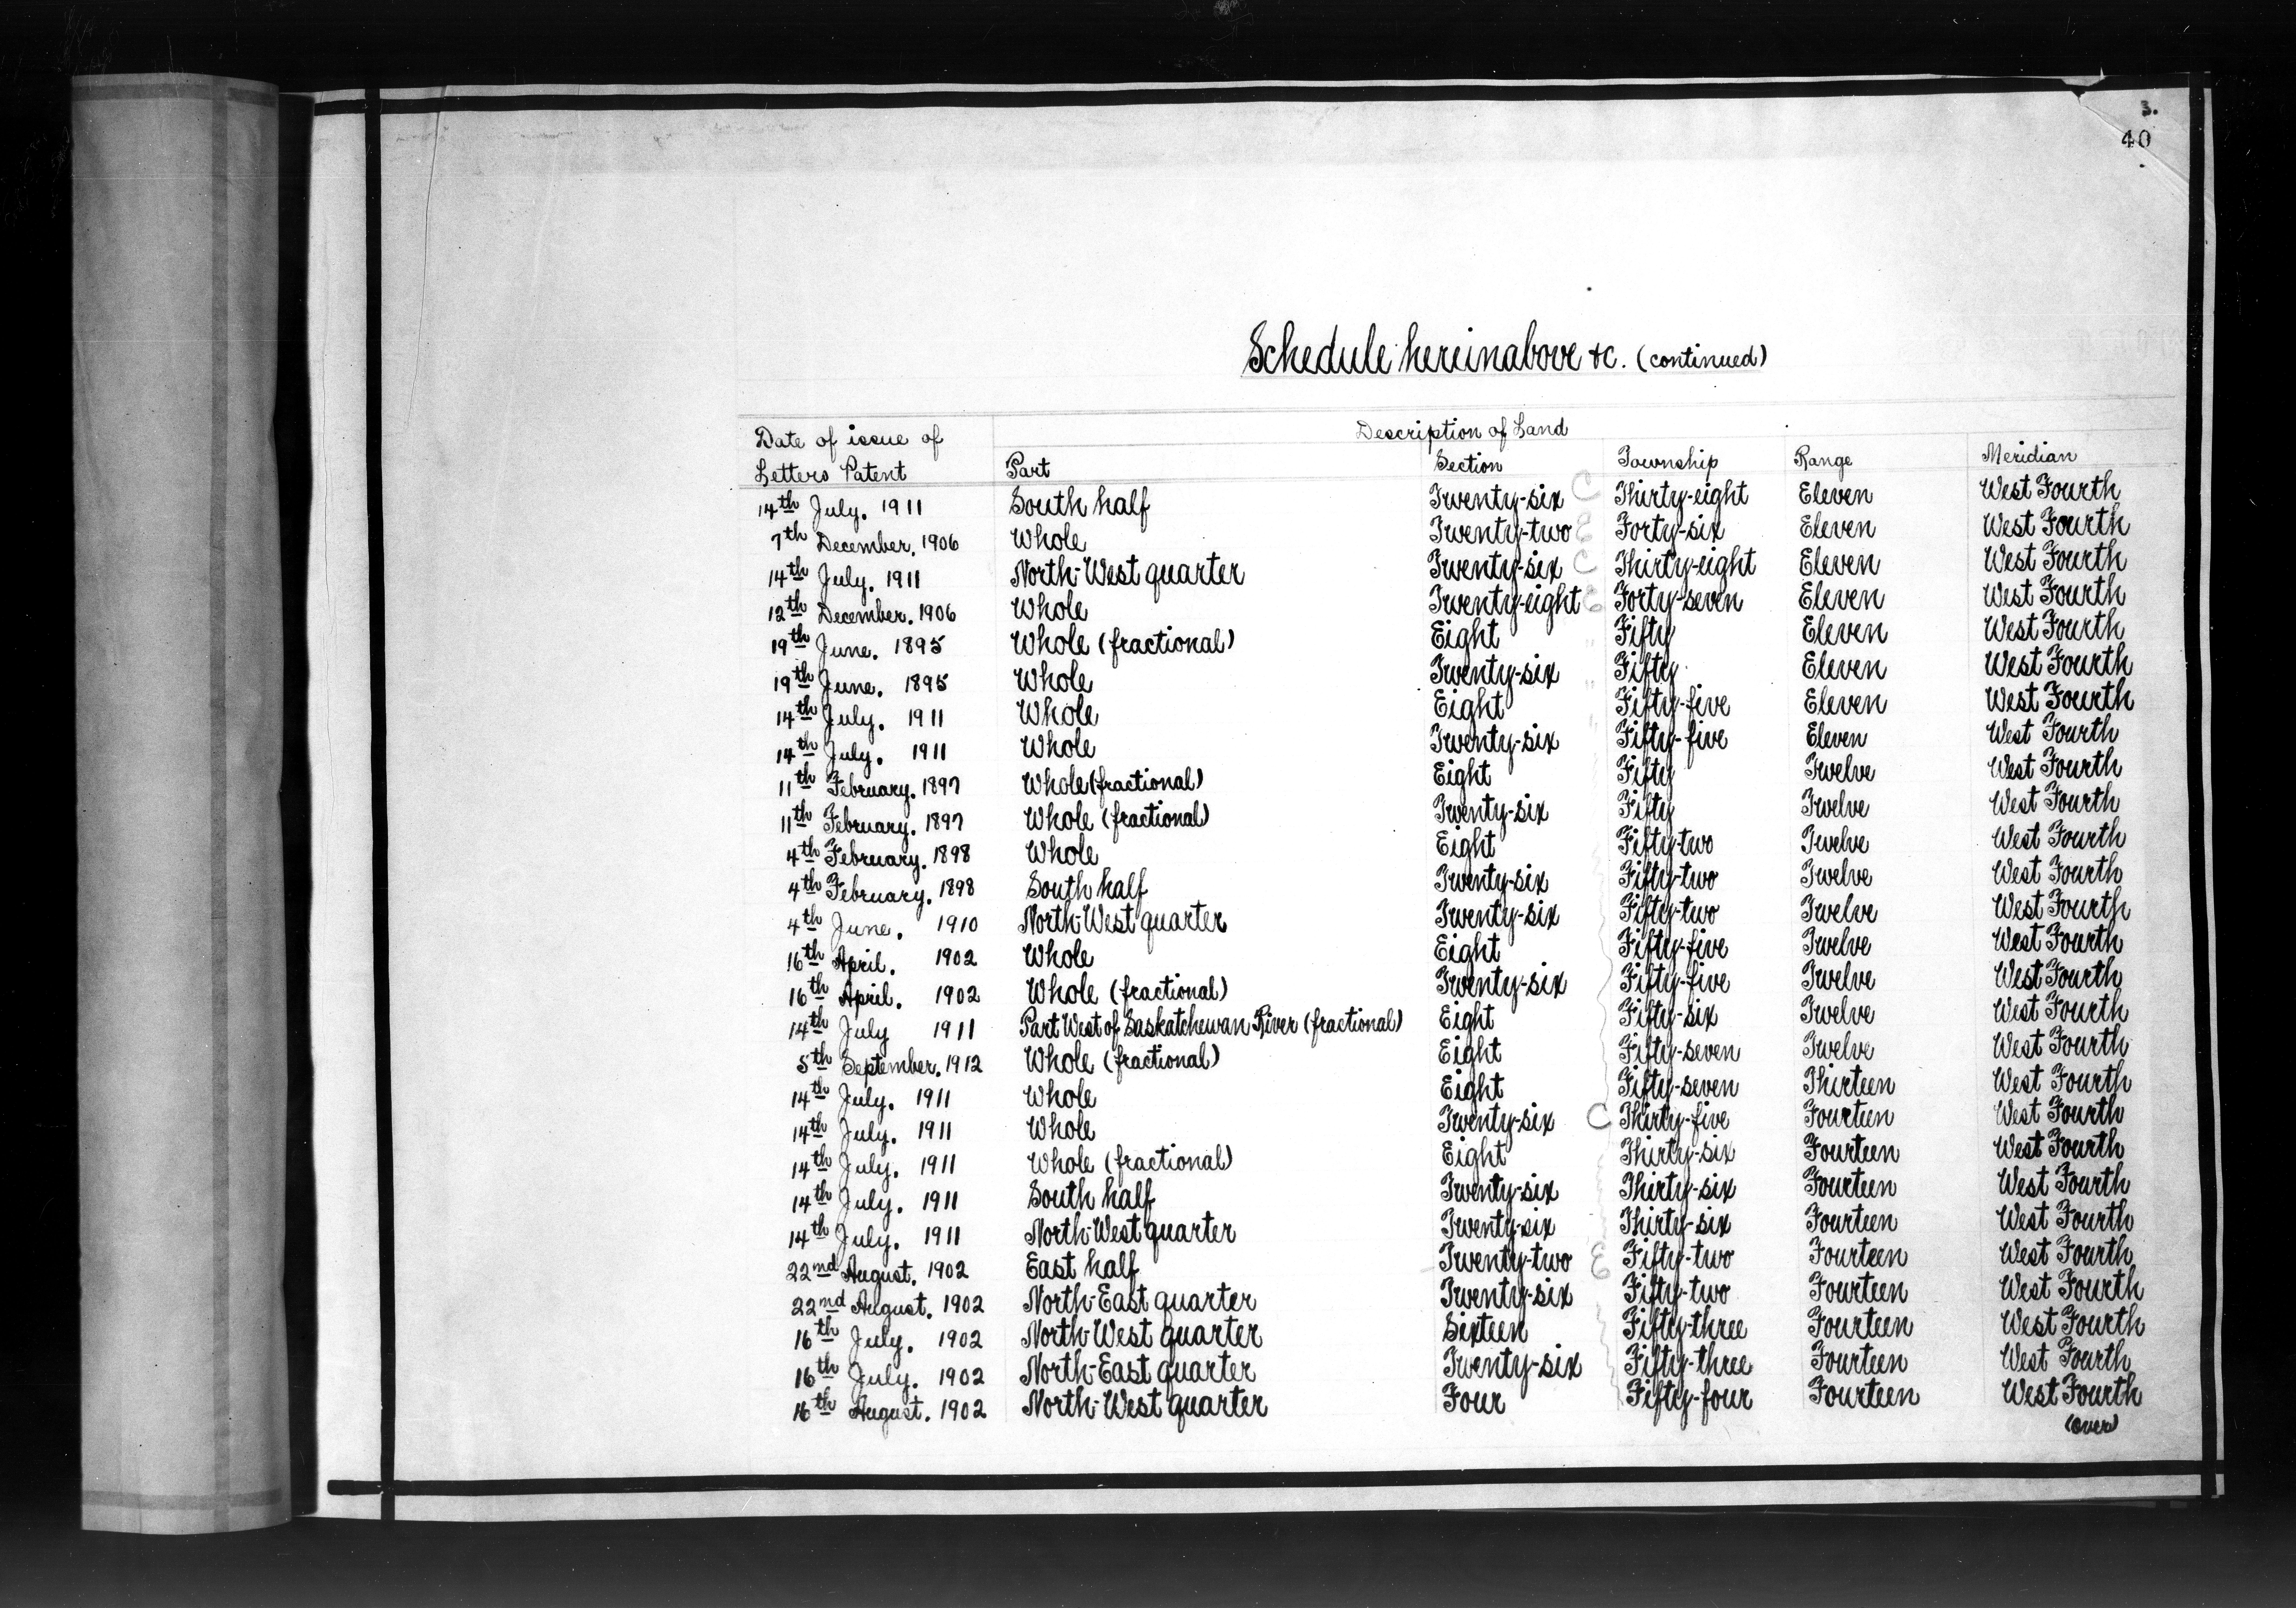 3.
40
Schedule hereinabove &c. (continued)
Description of Land
Date of issue of Letters Patent Part Section Township Range Meridian
14th July. 1911 South half Twenty-six C Thirty-eight Eleven West Fourth
7th December. 1906 Whole Twenty-two E Forty-six Eleven West Fourth
14th July. 1911 North-West quarter Twenty-six C Thirty-eight Eleven West Fourth
12th December. 1906 Whole Twenty-eight E Forty-seven Eleven West Fourth
19th June. 1895 Whole (fractional) Eight " Fifty Eleven West Fourth
19th June. 1895 Whole Twenty-six " Fifty Eleven West Fourth
14th July. 1911 Whole Eight " Fifty-five Eleven West Fourth
14th July. 1911 Whole Twenty-six Fifty-five Eleven West Fourth
11th February. 1897 Whole (fractional) Eight Fifty Twelve West Fourth
11th February. 1897 Whole (fractional) Twenty-six Fifty Twelve West Fourth
4th February. 1898 Whole Eight Fifty-two Twelve West Fourth
4th February. 1898 South half Twenty-six Fifty-two Twelve West Fourth
4th June. 1910 North-West quarter Twenty-six Fifty-two Twelve West Fourth
16th April. 1902 Whole Eight Fifty-five Twelve West Fourth
16th April. 1902 Whole (fractional) Twenty-six Fifty-five Twelve West Fourth
14th July 1911 Part West of Saskatchewan River (fractional) Eight Fifty-six Twelve West Fourth
5th September. 1912 Whole (fractional) Eight Fifty-seven Twelve West Fourth
14th July. 1911 Whole Eight Fifty-seven Thirteen West Fourth
14th July. 1911 Whole Twenty-six C Thirty-five Fourteen West Fourth
14th July. 1911 Whole (fractional) Eight Thirty-six Fourteen West Fourth
14th July. 1911 South half Twenty-six Thirty-six Fourteen West Fourth
14th July. 1911 North-West quarter Twenty-six Thirty-six Fourteen West Fourth
22nd August. 1902 East half Twenty-two E Fifty-two Fourteen West Fourth
22nd August. 1902 North-East quarter Twenty-six Fifty-two Fourteen West Fourth
16th July. 1902 North-West quarter Sixteen Fifty-three Fourteen West Fourth
16th July. 1902 North-East quarter Twenty-six Fifty-three Fourteen West Fourth
16th August. 1902 North-West quarter Four Fifty-four Fourteen West Fourth
(over)